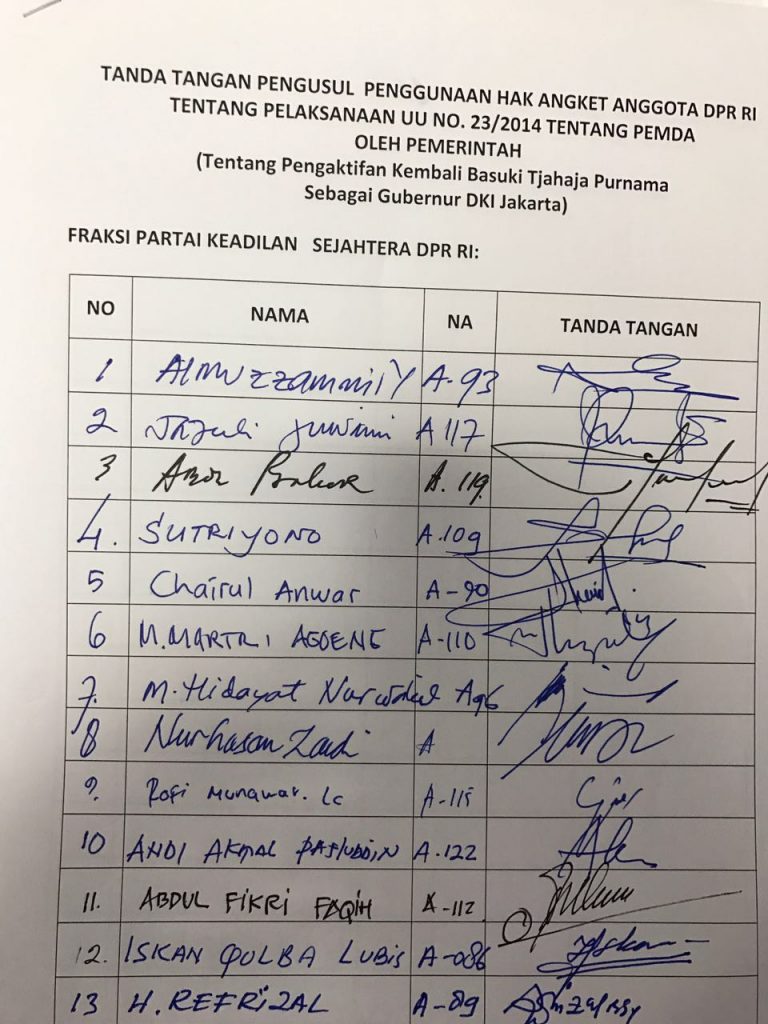 TANDA TANGAN PENGUSUL PENGGUNAAN HAK ANGKET ANGGOTA DPR RI
TENTANG PELAKSANAAN UU NO. 23/2014 TENTANG PEMDA
OLEH PEMERINTAH
(Tentang Pengaktifan Kembali Basuki Tjahaja Purnama
Sebagai Gubernur DKI Jakarta)
FRAKSI PARTAI KEADILAN SEJAHTERA DPR RI:
NO NAMA NA TANDA TANGAN
1 Almuzzammil Y A-93
2 Jazuli Juwaini A 117
3 Aboe Bakar A. 119
4. SUTRIYONO A.109
5 Chairul Anwar A-90
6 M. MARTRI AGOENG A-110
7. M. Hidayat Nurwahid A96
8 Nurhasan Zaidi A
9. Rofi Munawar. Lc A-115
10 ANDI AKMAL PASLUDDIN A.122
11. ABDUL FIKRI FAQIH A-112
12. ISKAN QULBA LUBIS A-086
13 H. REFRIZAL A-89